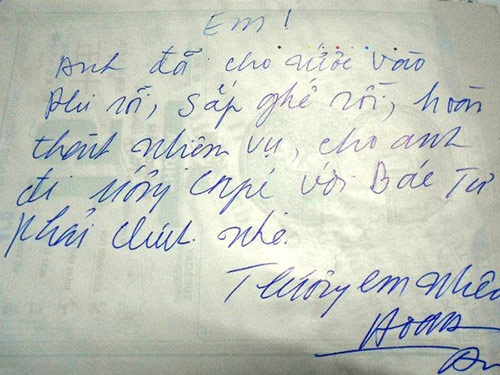 Em!
Anh đã cho nước vào
phi rồi, sắp ghế rồi, hoàn
thành nhiệm vụ, cho anh
đi uống cà phê với Bác Tư
phải chút nhé.
Thương em nhiều